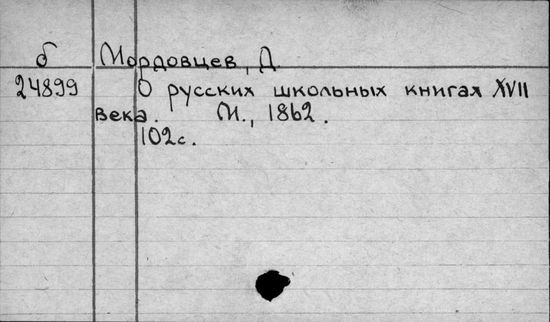 б Мордовцев, Д.
24899 О русских школьных книгах XVII
века. М., 1862.
102с.